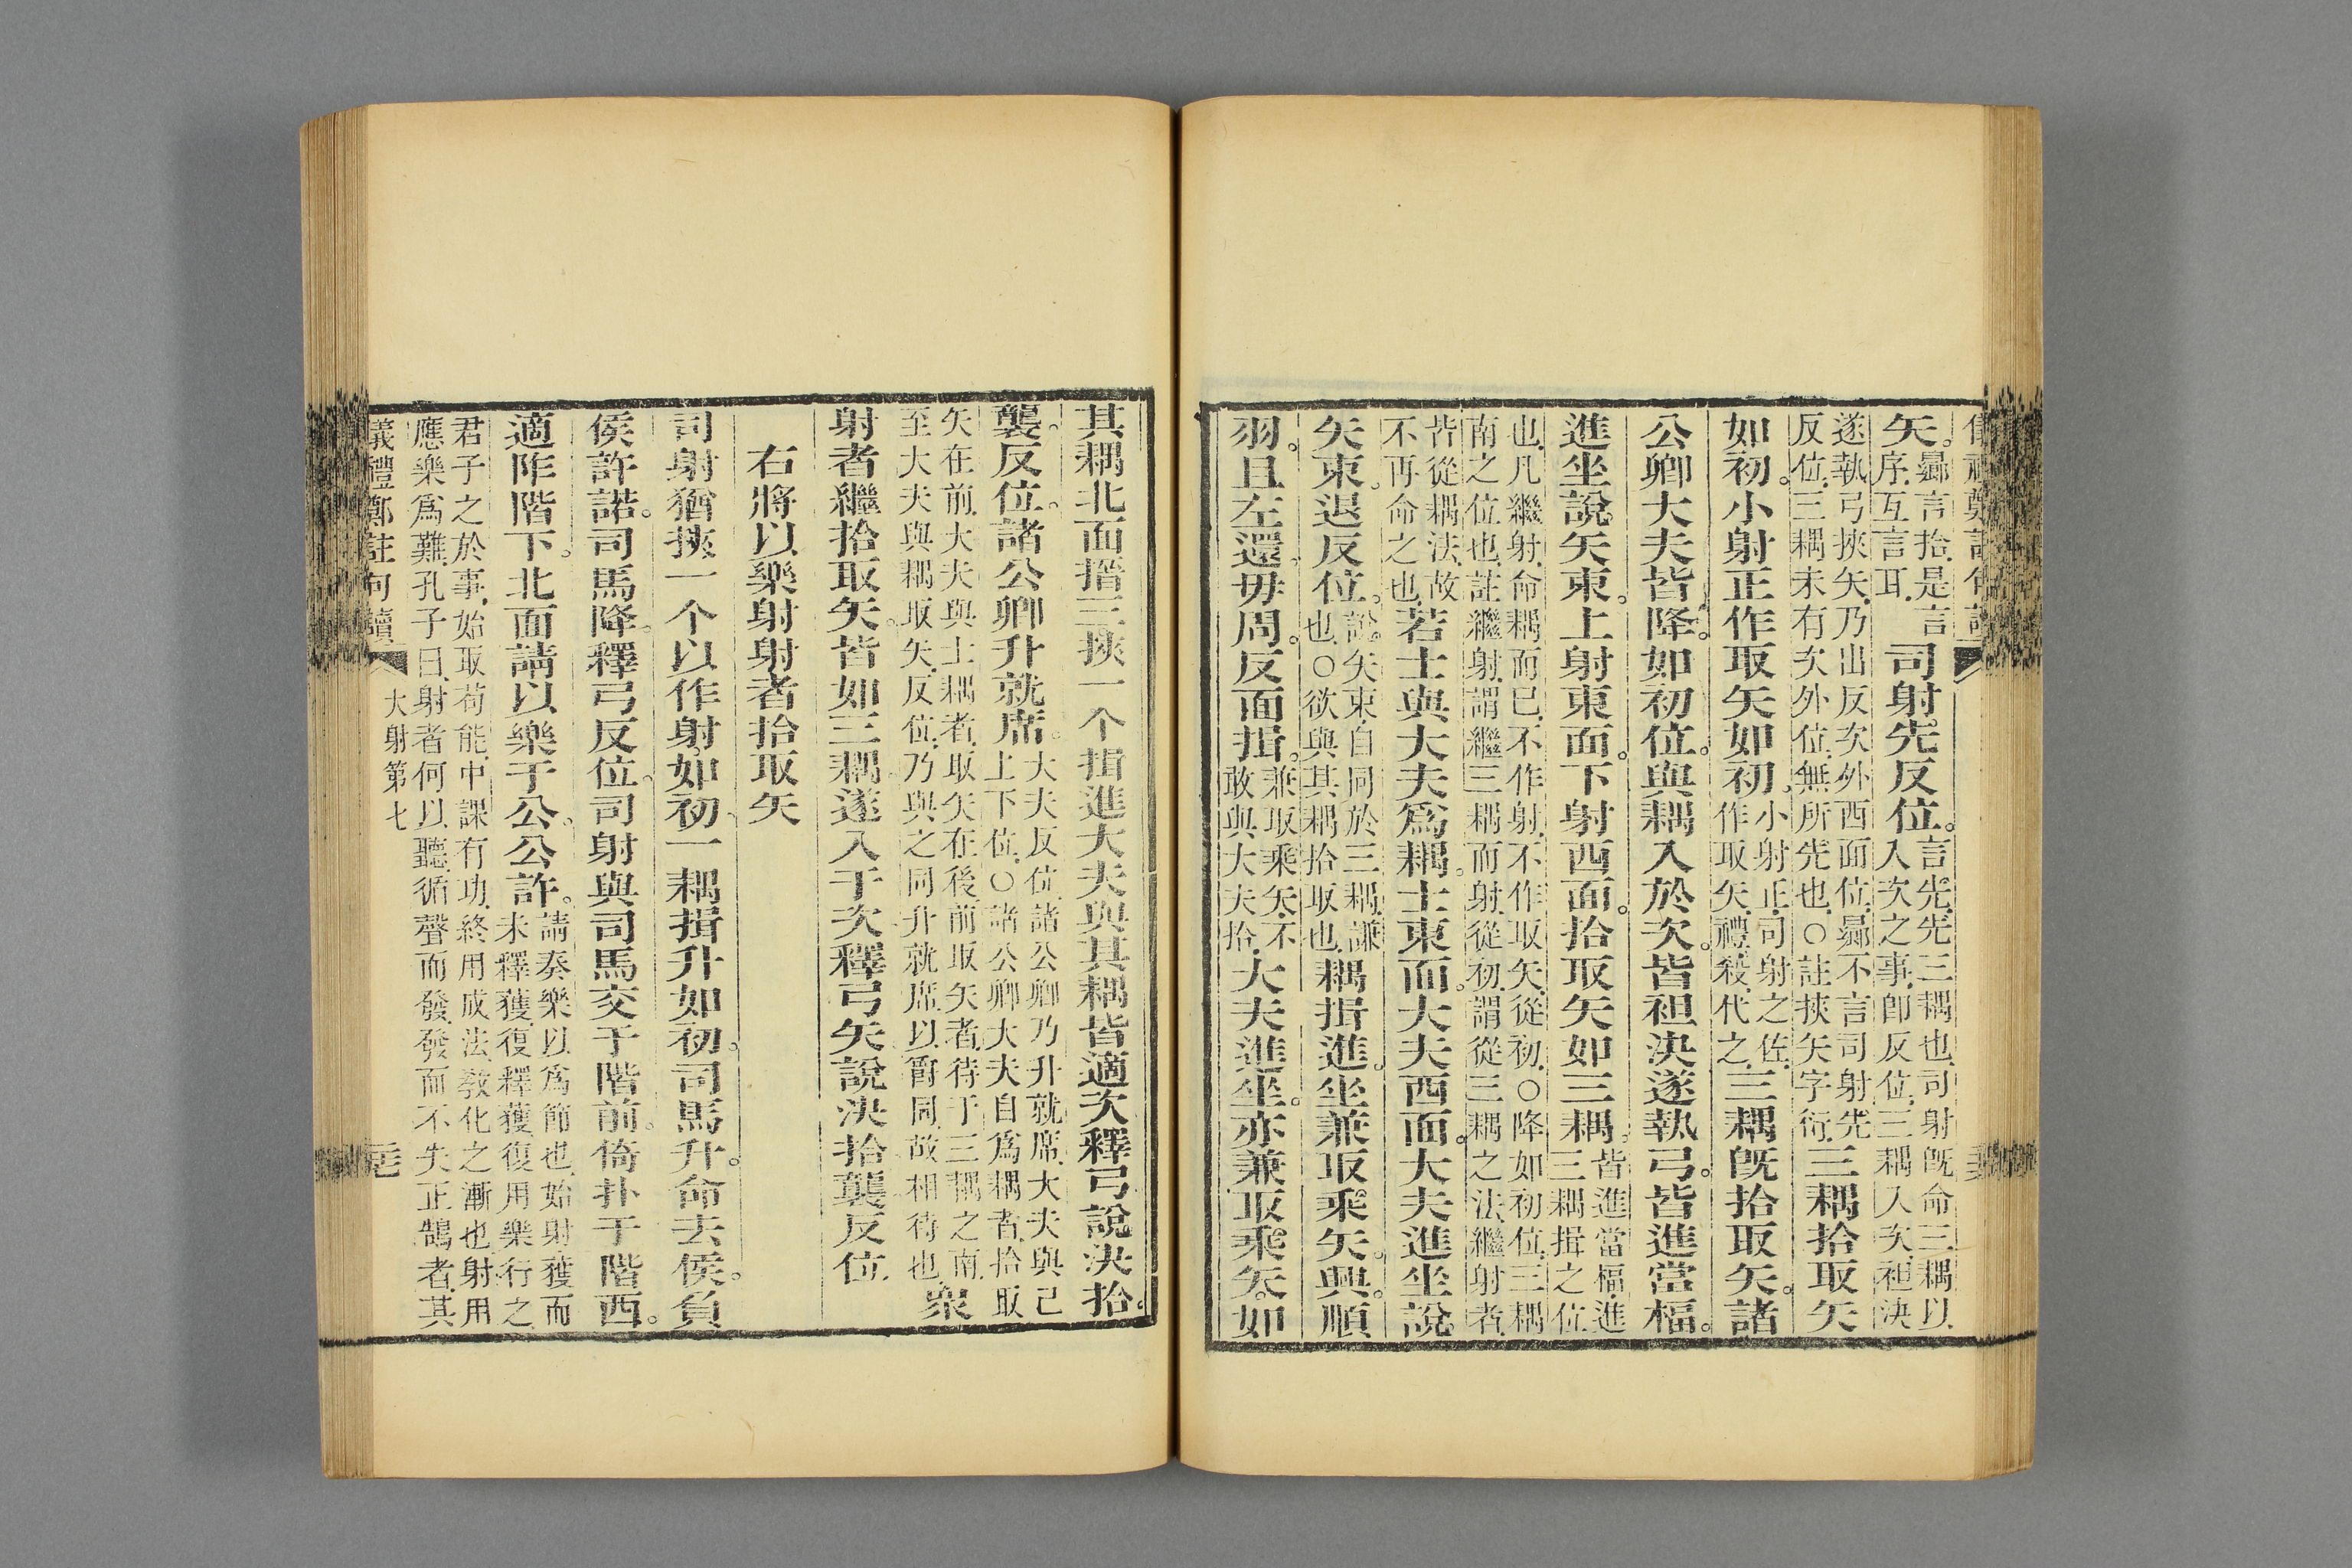 矢。曏言拾是言序互言耳司射先反位。言先先三耦也司射既命三耦以入次之事即反位三耦入次袒決
遂執弓挾矢乃出反次外西面位曏不言司射先反位三耦未有次外位無所先也○註挾矢字衍三耦拾取矢
如初。小射正作取矢如初小射正司射之佐作取矢禮殺代之三耦既拾取矢。諸
公卿大夫皆降。如初位。與耦入於次。皆袒決遂執弓。皆進當楅。
進坐說矢束。上射東面。下射西面。拾取矢如三耦。皆進當楅進三耦揖之位
也凡繼射命耦而已不作射不作取矢從初○降如初位三耦南之位也註繼射謂繼三耦而射從初謂從三耦之法繼射者
皆從耦法故不再命之也若士與大夫為耦。士東面。大夫西面。大夫進坐說
矢束。退反位。說矢束自同於三耦謙也○欲與其耦拾取也耦揖進。坐兼取乘矢。興。順
羽。且左還。毋周。反面揖。兼取乘矢不敢與大夫拾大夫進坐。亦兼取乘矢。如
其耦北面搢三挾一个揖進大夫與其耦皆適次釋弓說決拾。
襲。反位。諸公卿升就席。大夫反位諸公卿乃升就席大夫與己上下位○諸公卿大夫自為耦者拾取
矢在前大夫與士耦者取矢在後前取矢者待于三耦之南至大夫與耦取矢反位乃與之同升就席以爵同故相待也眾
射者繼拾取矢。皆如三耦。遂入于次釋弓矢說決拾襲反位
右將以樂射射者拾取矢
司射猶挾一个以作射如初一耦揖升如初。司馬升。命去侯。負
侯許諾。司馬降。釋弓反位。司射與司馬交于階前。倚扑于階西。
適阼階下。北面請以樂于公。公許。請奏樂以為節也始射獲而未釋獲復釋獲復用樂行之
君子之於事始取苟能中課有功終用成法教化之漸也射用應樂為難孔子曰射者何以聽循聲而發發而不失正鵠者其
儀禮鄭註句讀 大射第七